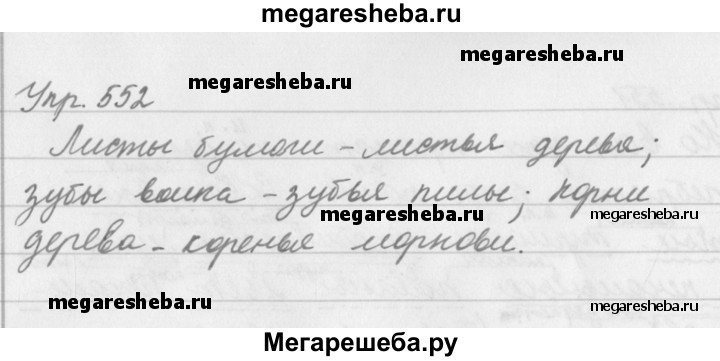 megaresheba.ru
megaresheba.ru
Упр. 552
Листы бумаги – листья дерева;
зубы волка – зубья пилы; корни
megaresheba.ru megaresheba.ru
дерева – коренья моркови.
megaresheba.ru megaresheba.ru
Мегарешеба.ру